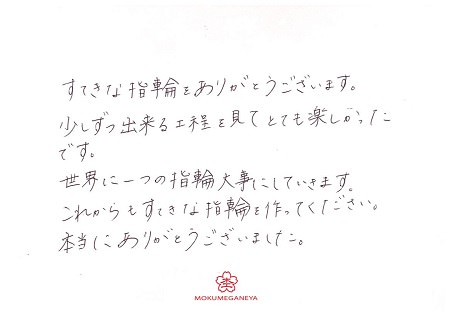 すてきな指輪をありがとうございます。
少しずつ出来る工程を見てとても楽しかった
です。
世界に一つの指輪大事にしていきます。
これからもすてきな指輪を作ってください。
本当にありがとうございました。
MOKUMEGANEYA